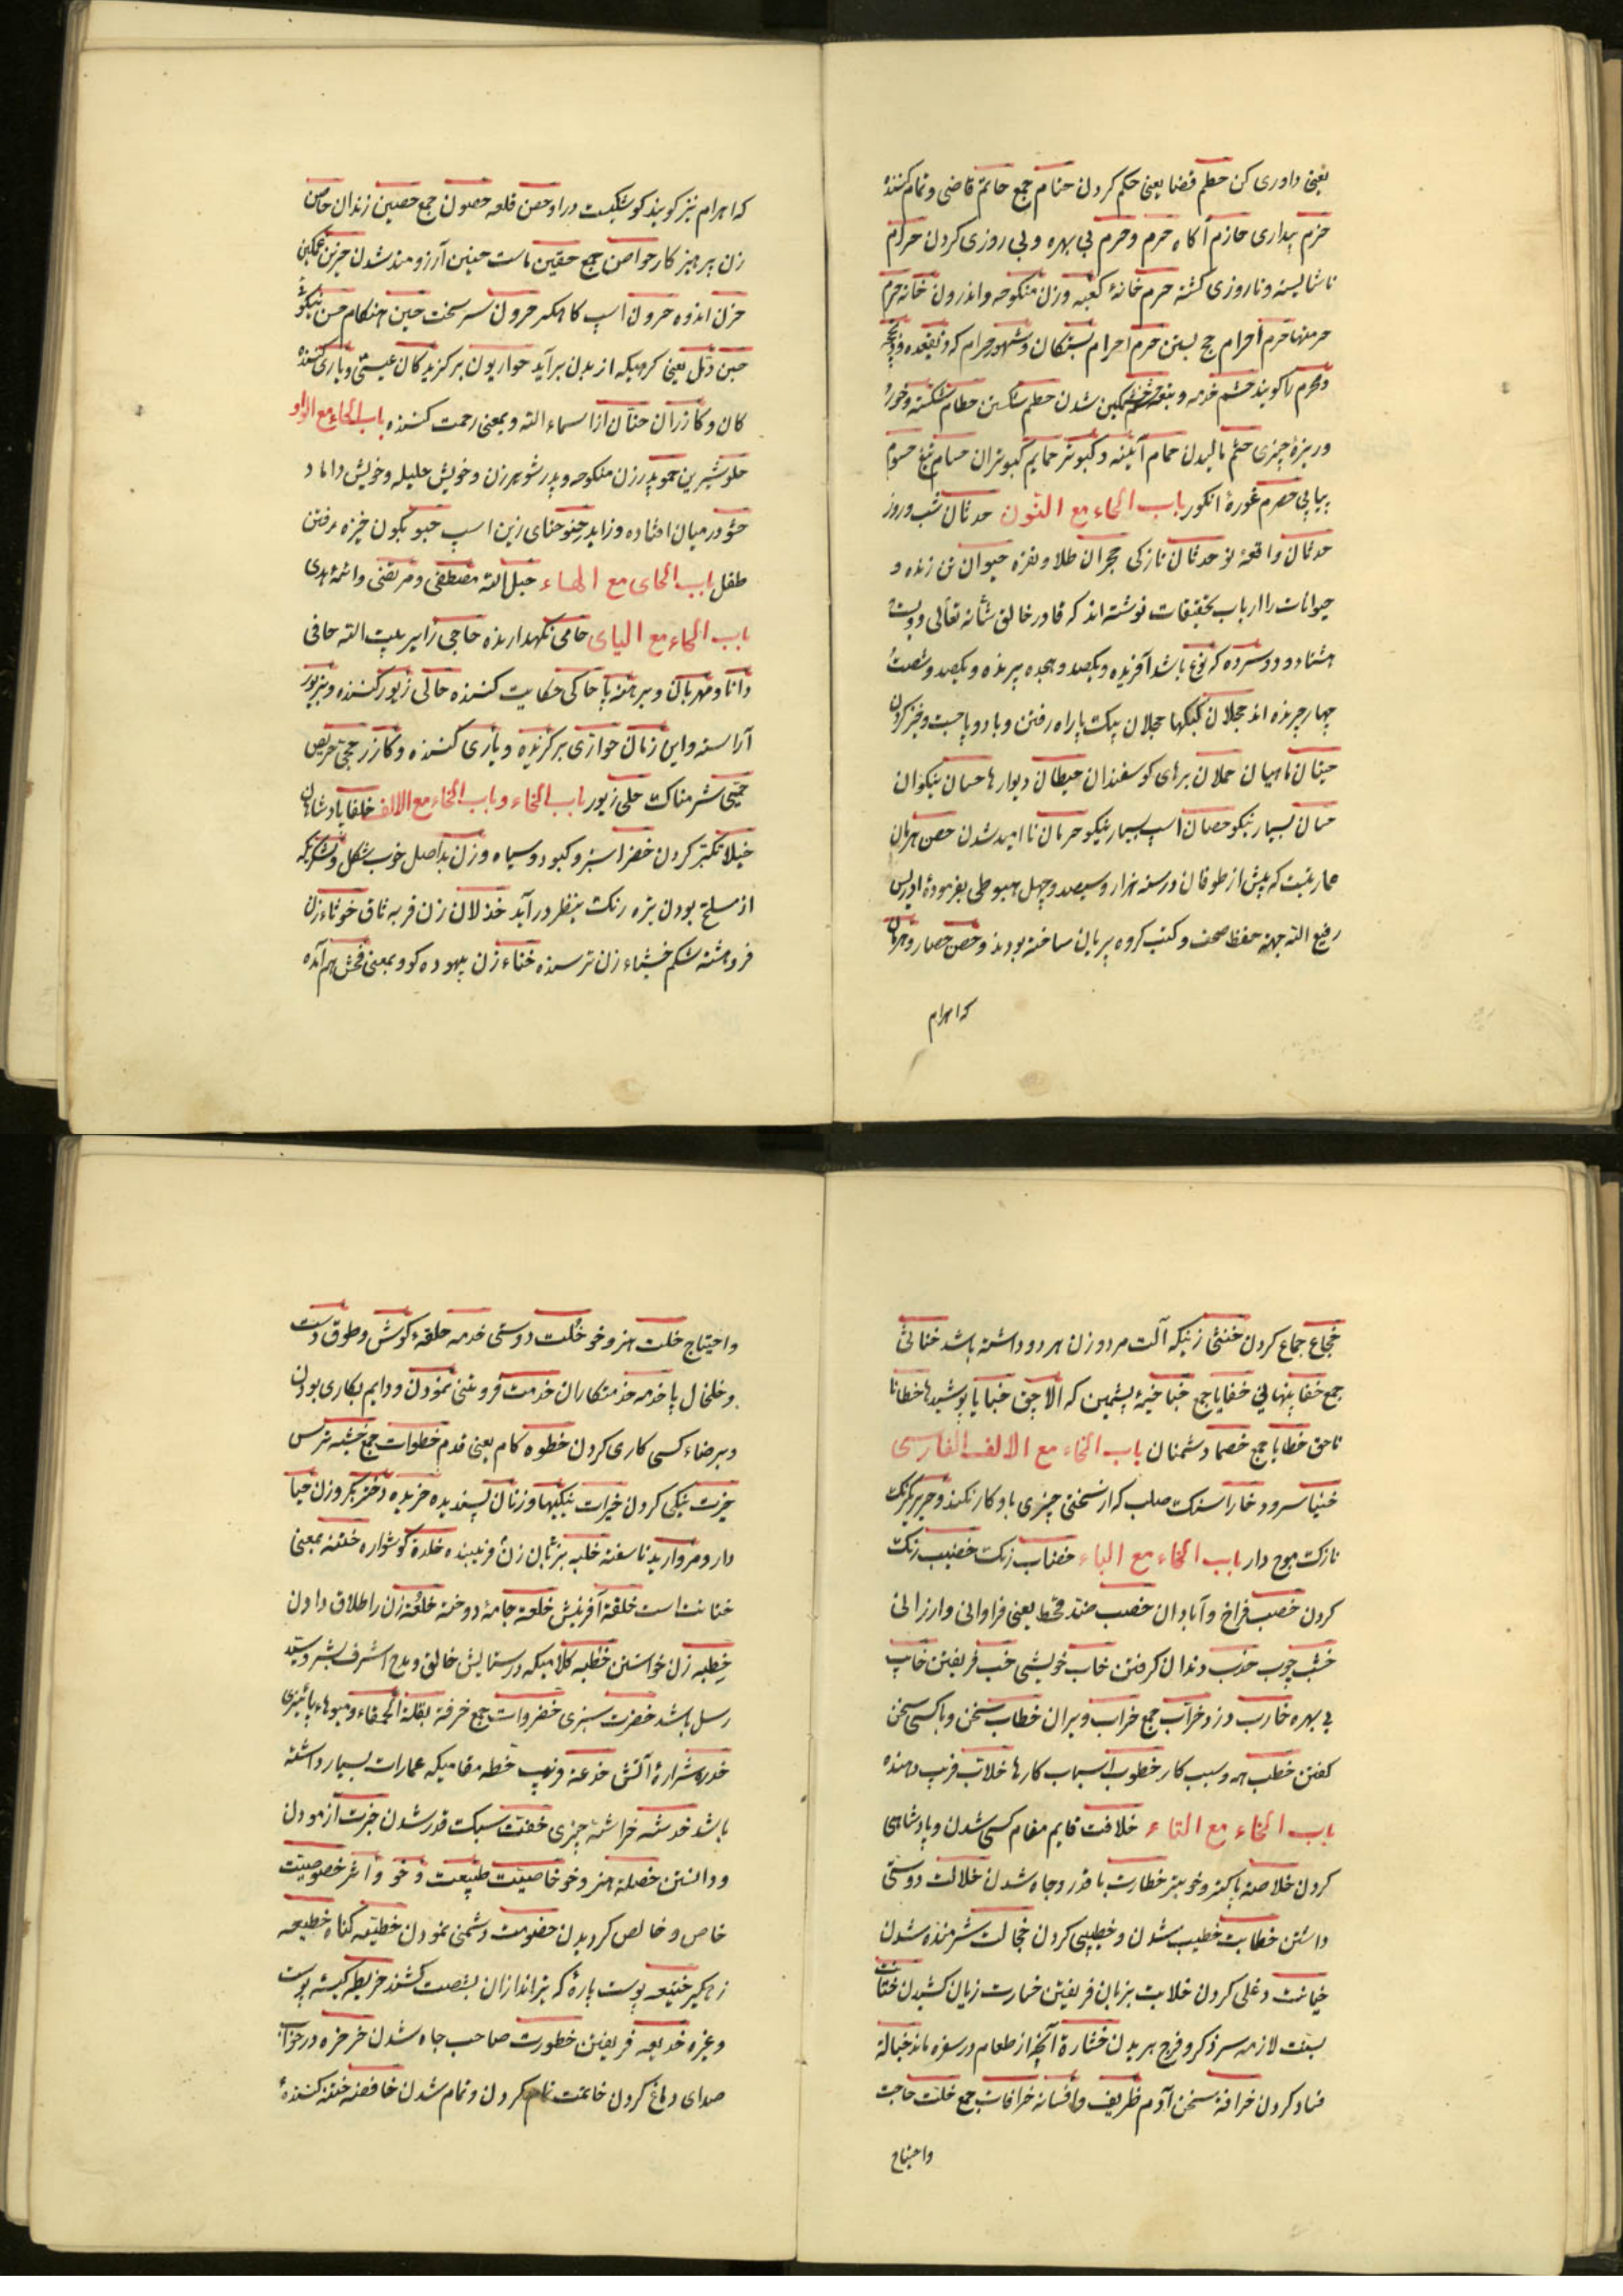 یعنی داوری کن حطم قضا یعنی حکم کردن حتام جمع حاتم قاضی و تمام کننده
حزم بیداری حازم آکاه حرم و حرم بی بهره و بی روزی کردن حرام
ناشایسته و ناروزی کشته حرم خانهٔ کعبه و زن منکوحه و اندرون خانه حرم
حرمتها حرم احرام حج بستن حرم احرام بستکان و شهور حرام که ذیقعده و ذیحجه
و محرم را کویند حشم خدمه و بفتحه خشمکین شدن حطم شکستن حطام شکسته و خورد
و ریزهٔ چیزی حتم مالیدن حمام آئینه و کبوتر حمایم کبوتران حسام تیغ حسوم
پیاپی حصرم غورهٔ انکور باب الحاء مع النون حدثان شب و روز
حدثان واقعهٔ نو حدثان نازکی حجران طلا و نقره حیوان تن زنده و
حیوانات را ارباب تحقیقات نوشته اند که قادر خالق شانه تعالی دویست
هشتاد و دو سرده که نوع باشد آفریده و یکصد و هجده پرنده و یکصد و شصت
چهار چرنده اند حجلان کبکها حجلان بیک پا راه رفتن و با دو پا جست و خیز کردن
حیتان ماهیان حملان برهای کوسفندان حیطان دیوارها حسان نیکوان
حسان بسیار نیکو حصان اسب بسیار نیکو حرمان ناامید شدن حصن هرمان
عماریست که پیش از طوفان در سنه هزار و سیصد و چهل هبوطی بفرمودهٔ ادریس
رفیع الله جهته حفظ صحف و کتب کروه پریان ساخته بودند و حصن حصار و هرمان
که اهرام
که اهرام نیز کویند کوشکیست در او حصن قلعه حصون جمع حصین زندان حاصن
زن پرهیز کار حواصن جمع حقین ماست حنین آرزومند شدن حزین غمکین
حزن اندوه حرون اسب کاهکیر حرون سرسخت حین هنکام حسن نیکو
حبن دمل یعنی کرهیکه از بدن برآید حواریون برکزیدکان عیسی و یاری کننده
کان و کازران حنان از اسماء الله و بمعنی رحمت کننده باب الحاء مع الواو
حلو شیرین حمو پدر زن منکوحه و پدر شوهر زن و خویش حلیله و خویش داماد
حشو در میان افتاده و زاید حنو حنای زین اسب حبو بکون خیزه رفتن
طفل باب الحای مع الهاء حبل الله مصطفی و مرتضی و ائمهٔ هدی
باب الحاء مع الیای حامی نکهدارنده حاجی زایر بیت الله حافی
دانا و مهربان و برهنه پا حاکی حکایت کننده حالی زیور کننده و بزیور
آراسته و این زمان حواری برکزیده و یاری کننده و کازر حجی حریص
حیی شرمناک حلی زیور باب الخاء و باب الخاء مع الالف خلفا پادشاهان
خیلا تکبر کردن خضرا سبز و کبود و سیاه و زن بداصل خوب شکل و لشکریکه
از سلح بودن تیره رنک بنظر درآید خذلان زن فربه ساق خوثاء زن
فروهشته شکم خشیاء زن ترسنده خناء زن بیهوده کو و بمعنی فحش هم آمده
خجاع جماع کردن خنثی زنیکه آلت مرد و زن هر دو داشته باشد خناثی
جمع خفا پنهانی خفایا جمع خبا خیمهٔ پشمین که الاچق خبایا پوشیدها خطا نا
ناحق خطایا جمع خصما دشمنان باب الخاء مع الالف الفارسی
خنیا سرود خارا سنک صلب که از سختی چیزی باو کار نکند و حریر یکرنک
نازک موج دار باب الخاء مع الباء خضاب رنک خضیب رنک
کردن خصب فراخ و آبادان خصب ضد قحط یعنی فراوانی و ارزانی
خشب چوب خدب دندان کرفتن خاب خویشی خب فریفتن خایب
بی بهره خارب دزد خراب جمع خراب ویران خطاب سخن و باکسی سخن
کفتن خطب مه و سبب کار خطوب اسباب کارها خلاب فریب دهنده
باب الخاء مع التاء خلافت قایم مقام کسی شدن و پادشاهی
کردن خلاصه پاکیزه و خوبتر خطارت با قدر و جاه شدن خلالت دوستی
داشتن خطابت خطیب شدن و خطیبی کردن خجالت شرمنده شدن
خیانت دغلی کردن خلابت بزبان فریفتن خسارت زیان کشیدن ختانت
سنت لازمه سر ذکر و فرج بریدن خشارة آنچه از طعام در سفره ماند خبالة
فساد کردن خرافة سخن آدم ظریف و افسانه خرافات جمع خلت حاجت
واحتیاج
واحتیاج خلت هنر و خو خلت دوستی خدمه حلقهٔ کوش و طوق دست
و خلخال پا خدمه خدمتکاران خدمت فروتنی نمودن و دایم بکاری بودن
و برضاء کسی کاری کردن خطوه کام یعنی قدم خطوات جمع خشیه ترس
خیرت نیکی کردن خیرات نیکیها و زنان پسندیده خریده دختر بکر و زن حیا
دار و مروارید ناسفته خلبه بزبان زن فریبنده خلدة کوشواره ختنه بمعنی
ختانت است خلقة آفرینش خلعة جامهٔ دوخته خلعة زن را طلاق دادن
خطبه زن خواستن خطبه کلامیکه در ستایش خالق و مدح اشرف بشر و سید
رسل باشد خضرت سبزی خضروات جمع خرفه بقلة الحمقاء و میوهاء پائیزی
خدره شرارهٔ آتش خدعه فریب خطه مقامیکه عمارات بسیار داشته
باشد خدشه خراشهٔ چیزی خفت سبک قدر شدن خبرت آزمودن
و دانستن خصله هنر و خو خاصیت طبیعت و خو و اثر خصوصیت
خاص و خالص کردیدن خصومت دشمنی نمودن خطیئه کناه خطیعه
زهکیر ختیعه پوست پارهٔ که تیراندازان بشصت کشند خریطه کیسهٔ پوست
وغیره خدیعه فریفتن خطورت صاحب جاه شدن خرخره در خواب
صدای دماغ کردن خاتمت تمام کردن و تمام شدن خافضه ختنه کنندهٔ